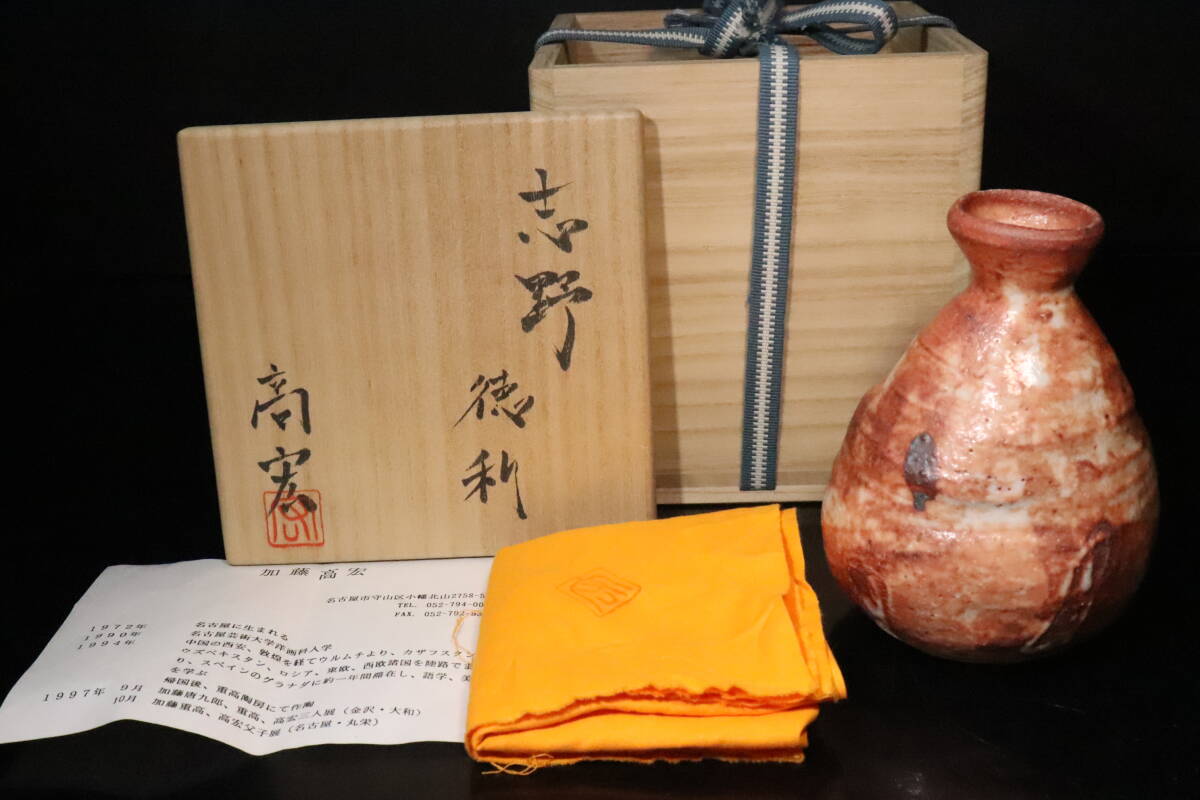 志野
徳利
高宏
加藤高宏
名古屋市守山区小幡北山2758-5
TEL. 052-794-00
FAX. 052-792-
1972年 名古屋に生まれる
1990年 名古屋芸術大学洋画科入学
1994年 中国の西安、敦煌を経てウルムチより、カザフスタン
ウズベキスタン、ロシア、東欧、西欧諸国を陸路で
り、スペインのグラナダに約一年間滞在し、語学、美
を学ぶ
帰国後、重高陶房にて作陶
1997年 9月 加藤唐九郎、重高、高宏三人展（金沢・大和）
10月 加藤重高、高宏父子展（名古屋・丸栄）